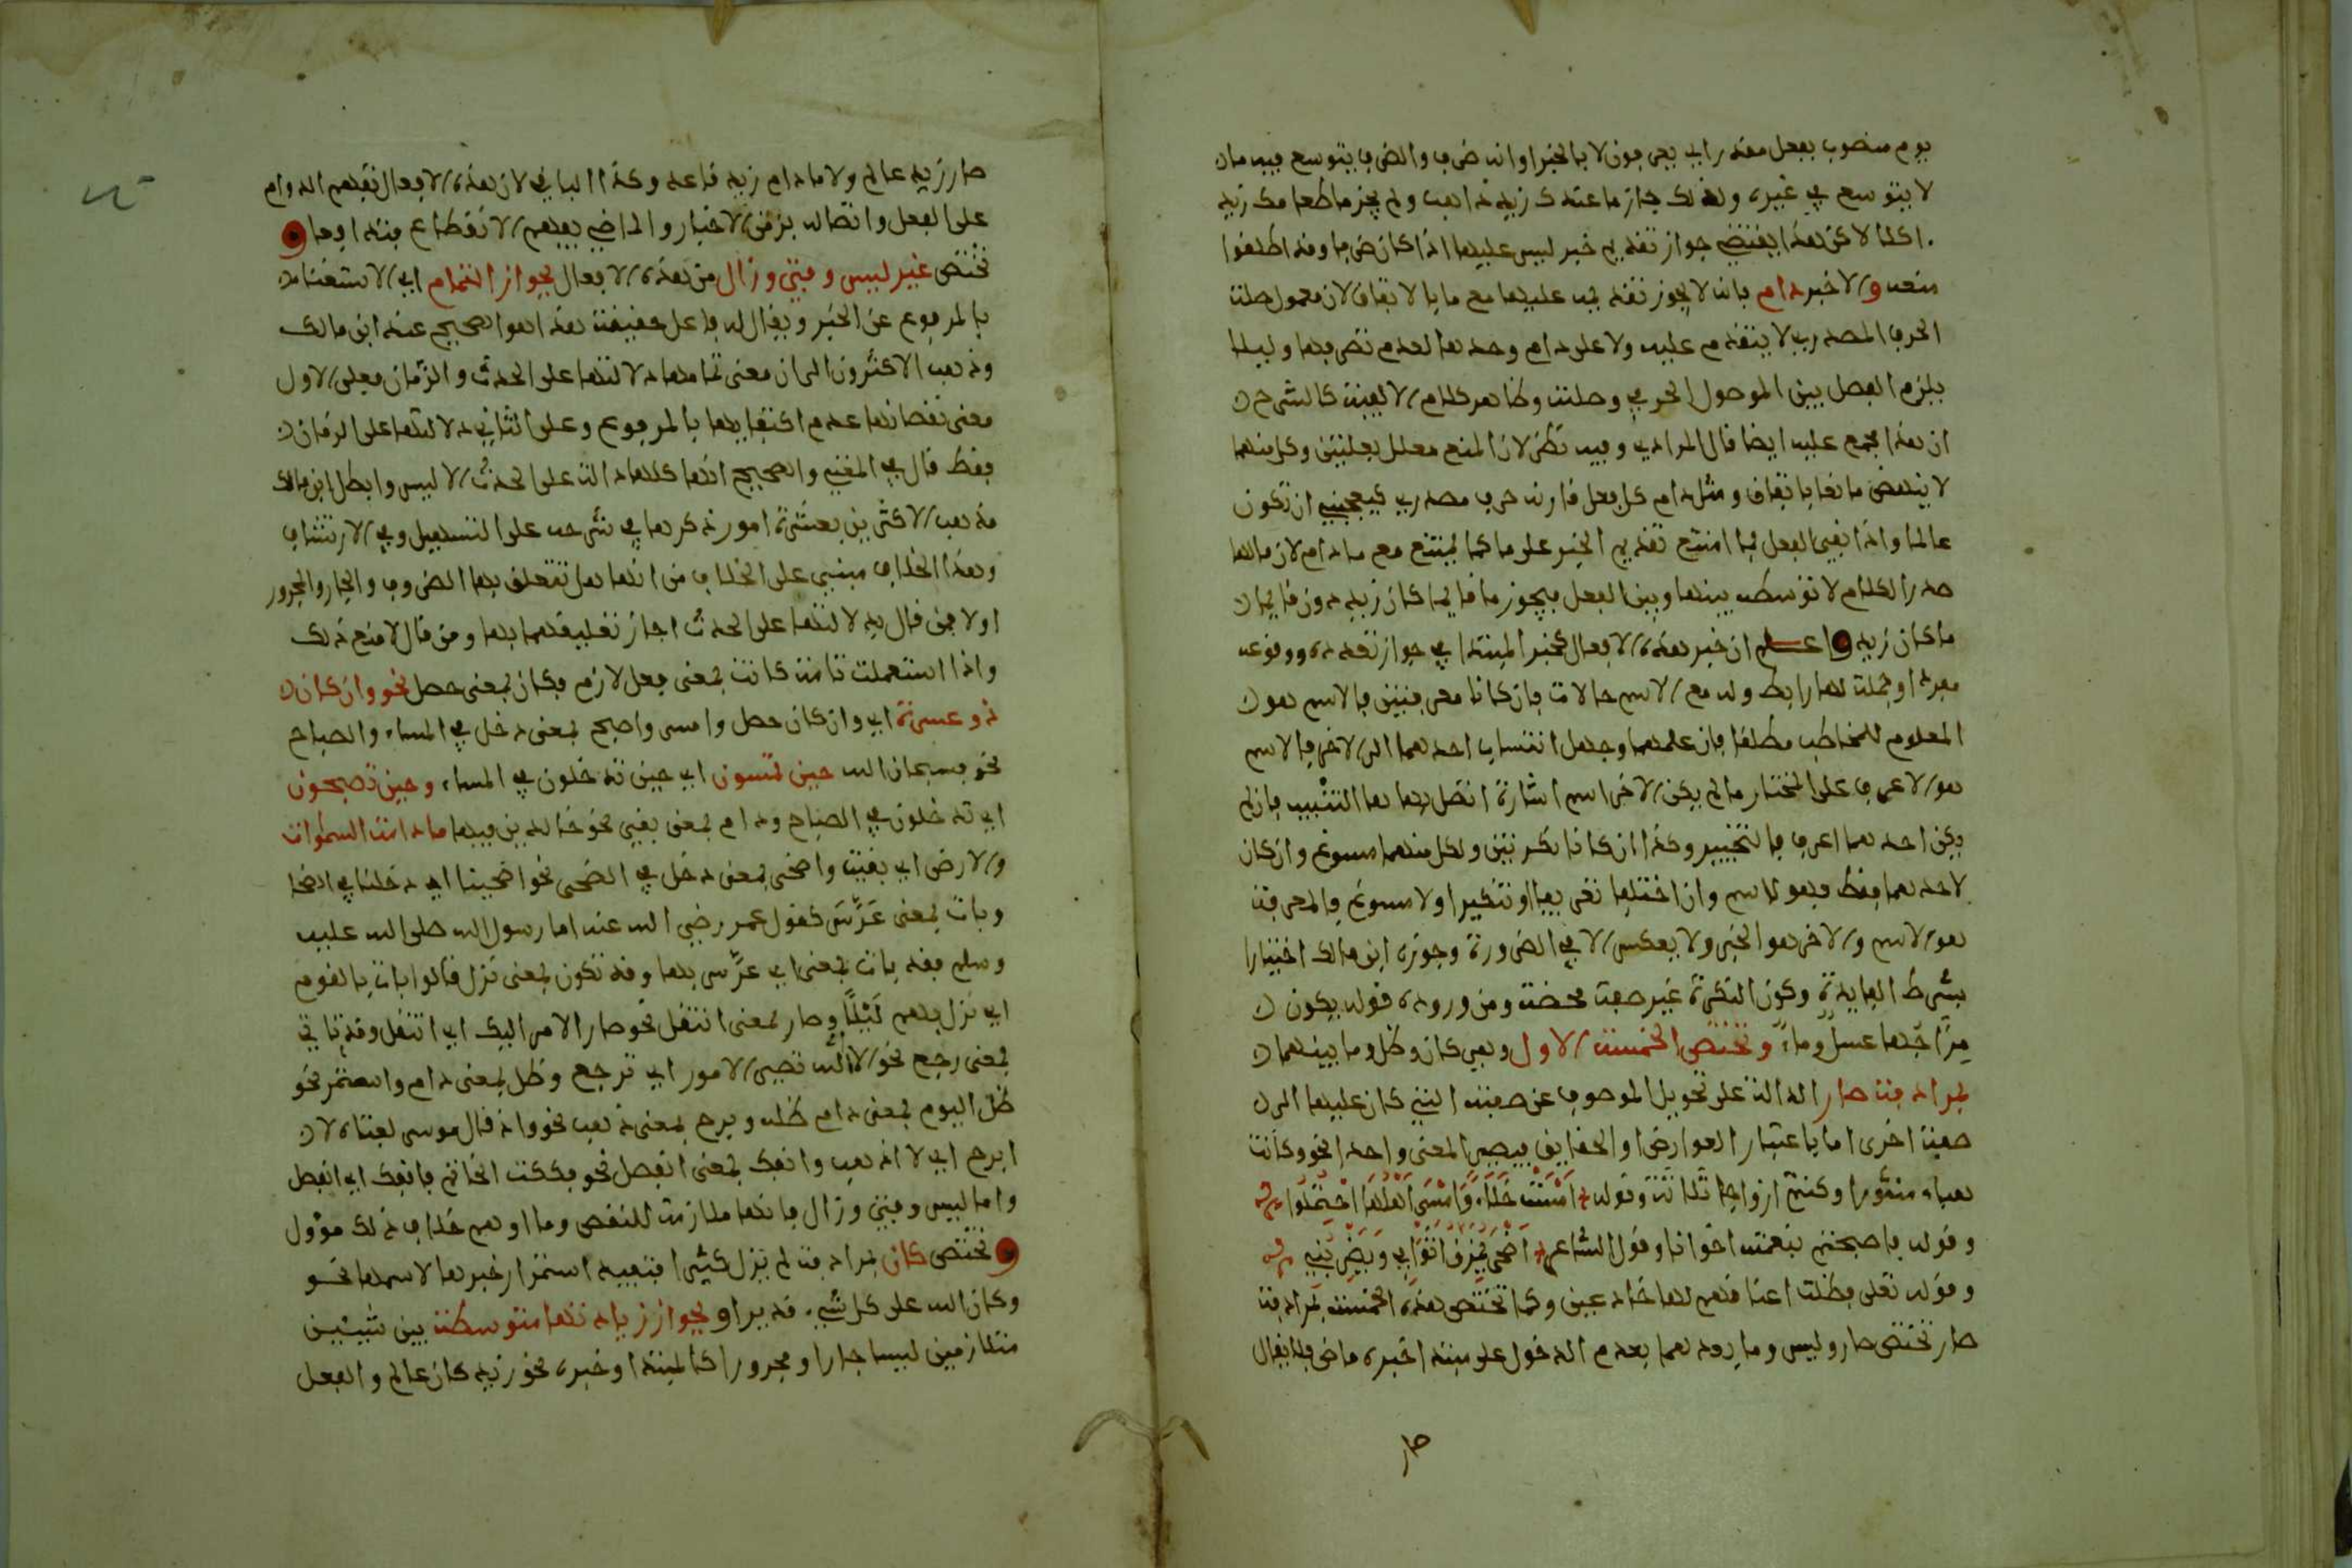 يوم منصوب بفعل مقدر اي يعرفون لا بالخبر او انه ظرف والظرف يتوسع فيه ما لا
لا يتوسع في غيره ولذلك جاز ما عندك زيد ذاهب ولم يجز ما طعامك زيد
اكلا لاكن هذا يقتضي جواز تقديم خبر ليس عليها اذا كان ظرفا وقد اطلقوا
منعه والاخير دام فانه لا يجوز تقديمه عليها مع ما باتفاق لان معمول صلة
الحرف المصدري لا يتقدم عليه ولا على دام وحدها لعدم تصرفها وليلا
يلزم الفصل بين الموصول الحرفي وصلته وظاهر كلام الالفية كالشرح
ان هذا مجمع عليه ايضا قال المرادي وفيه نظر لان المنع معلل بعلتين وكل منهما
لا ينهض مانعا باتفاق ومثل دام كل فعل قارنه حرف مصدري كيعجبني ان تكون
عالما واذا نفي الفعل بما امتنع تقديم الخبر على ما كما يمتنع مع ما دام لان ما لها
صدر الكلام لا توسطه بينها وبين الفعل فيجوز ما قايما كان زيد دون قايما
ما كان زيد واعلم ان خبر هذه الافعال كخبر المبتدا في جواز تعدده ووقوعه
مفردا وجملة لها رابط وله مع الاسم حالات فان كانا معرفتين فالاسم هو
المعلوم للمخاطب مطلقا فان علمهما وجهل انتساب احدهما الى الاخر فالاسم
هو الاعرف على المختار ما لم يكن الاخر اسم اشارة اتصل بها ها التنبيه فان لم
يكن احدهما اعرف فالتخيير وكذا ان كانا نكرتين ولكل منهما مسوغ وان كان
لاحدهما فقط فهو الاسم وان اختلفا تعريفا وتنكيرا ولا مسوغ فالمعرفة
هو الاسم والاخر هو الخبر ولا يعكس الا في الضرورة وجوزه ابن مالك اختيارا
بشرط الفايدة وكون النكرة غير صفة محضة ومن وروده قوله يكون
مزاجها عسل وماء وتختص الخمسة الاول وهي كان وظل وما بينهما
بمرادفة صار الدالة على تحويل الموصوف عن صفته التي كان عليها الى
صفة اخرى اما باعتبار العوارض او الحقايق فيصير المعنى واحدا نحو وكانت
هباء منثورا وكنتم ازواجا ثلاثة وقوله امست خلاء وامسى اهلها احتملوا
وقوله فاصبحتم بنعمته اخوانا وقول الشاعر اضحى يمزق اثوابي ويضربني
وقوله تعلى فظلت اعناقهم لها خاضعين وكما تختص هذه الخمسة بمرادفة
صار تختص صار وليس وما بعدهما بعدم الدخول على مبتدا خبره ماض فلا يقال
صار
صار زيد عالم ولا ما دام زيد قاعد وكذا الباقي لان هذه الافعال تفهم الدوام
على الفعل واتصاله بزمن الاخبار والماضي يفهم الانقطاع فتدافعا و
تختص غير ليس وفتئ وزال من هذه الافعال بجواز التمام اي الاستغناء
بالمرفوع عن الخبر ويقال له فاعل حقيقة هذا هو الصحيح عند ابن مالك
وذهب الاكثرون الى ان معنى تمامها دلالتها على الحدث والزمان فعلى الاول
معنى نقصانها عدم اكتفايها بالمرفوع وعلى الثاني دلالتها على الزمان
فقط قال في المغني والصحيح انها كلها دالة على الحدث الا ليس وابطل ابن مالك
مذهب الاكثرين بعشرة امور ذكرها في شرحه على التسهيل وفي الارتشاف
وهذا الخلاف مبني على الخلاف من انها هل تتعلق بها الظروف والجار والمجرور
او لا فمن قال بدلالتها على الحدث اجاز تعليقهما بها ومن قال لا منع ذلك
واذا استعملت تامة كانت بمعنى فعل لازم فكان بمعنى حصل نحو وان كان
ذو عسرة اي وان كان حصل وامسى واصبح بمعنى دخل في المساء والصباح
نحو فسبحان الله حين تمسون اي حين تدخلون في المساء وحين تصبحون
اي تدخلون في الصباح ودام بمعنى بقي نحو خالدين فيها ما دامت السموات
والارض اي بقيت واضحى بمعنى دخل في الضحى نحو اضحينا اي دخلنا في الضحا
وبات بمعنى عرس كقول عمر رضي الله عنه اما رسول الله صلى الله عليه
وسلم فقد بات بمعنى اي عرس بها وقد تكون بمعنى نزل قالوا بات بالقوم
اي نزل بهم ليلا وصار بمعنى انتقل نحو صار الامر اليك اي انتقل وقد تاتي
بمعنى رجع نحو الا الى الله تصير الامور اي ترجع وظل بمعنى دام واستمر نحو
ظل اليوم بمعنى دام ظله وبرح بمعنى ذهب نحو واذ قال موسى لفتاه لا
ابرح اي لا اذهب وانفك بمعنى انفصل نحو فككت الخاتم فانفك اي انفصل
واما ليس وفتئ وزال فانها ملازمة للنقص وما اوهم خلاف ذلك مؤول
و تختص كان بمرادفة لم يزل كثيرا فتفيد استمرار خبرها لاسمها نحو
وكان الله على كل شيء قديرا وبجواز زيادتها متوسطة بين شيئين
متلازمين ليسا جارا ومجرورا كالمبتدا وخبره نحو زيد كان عالم والفعل